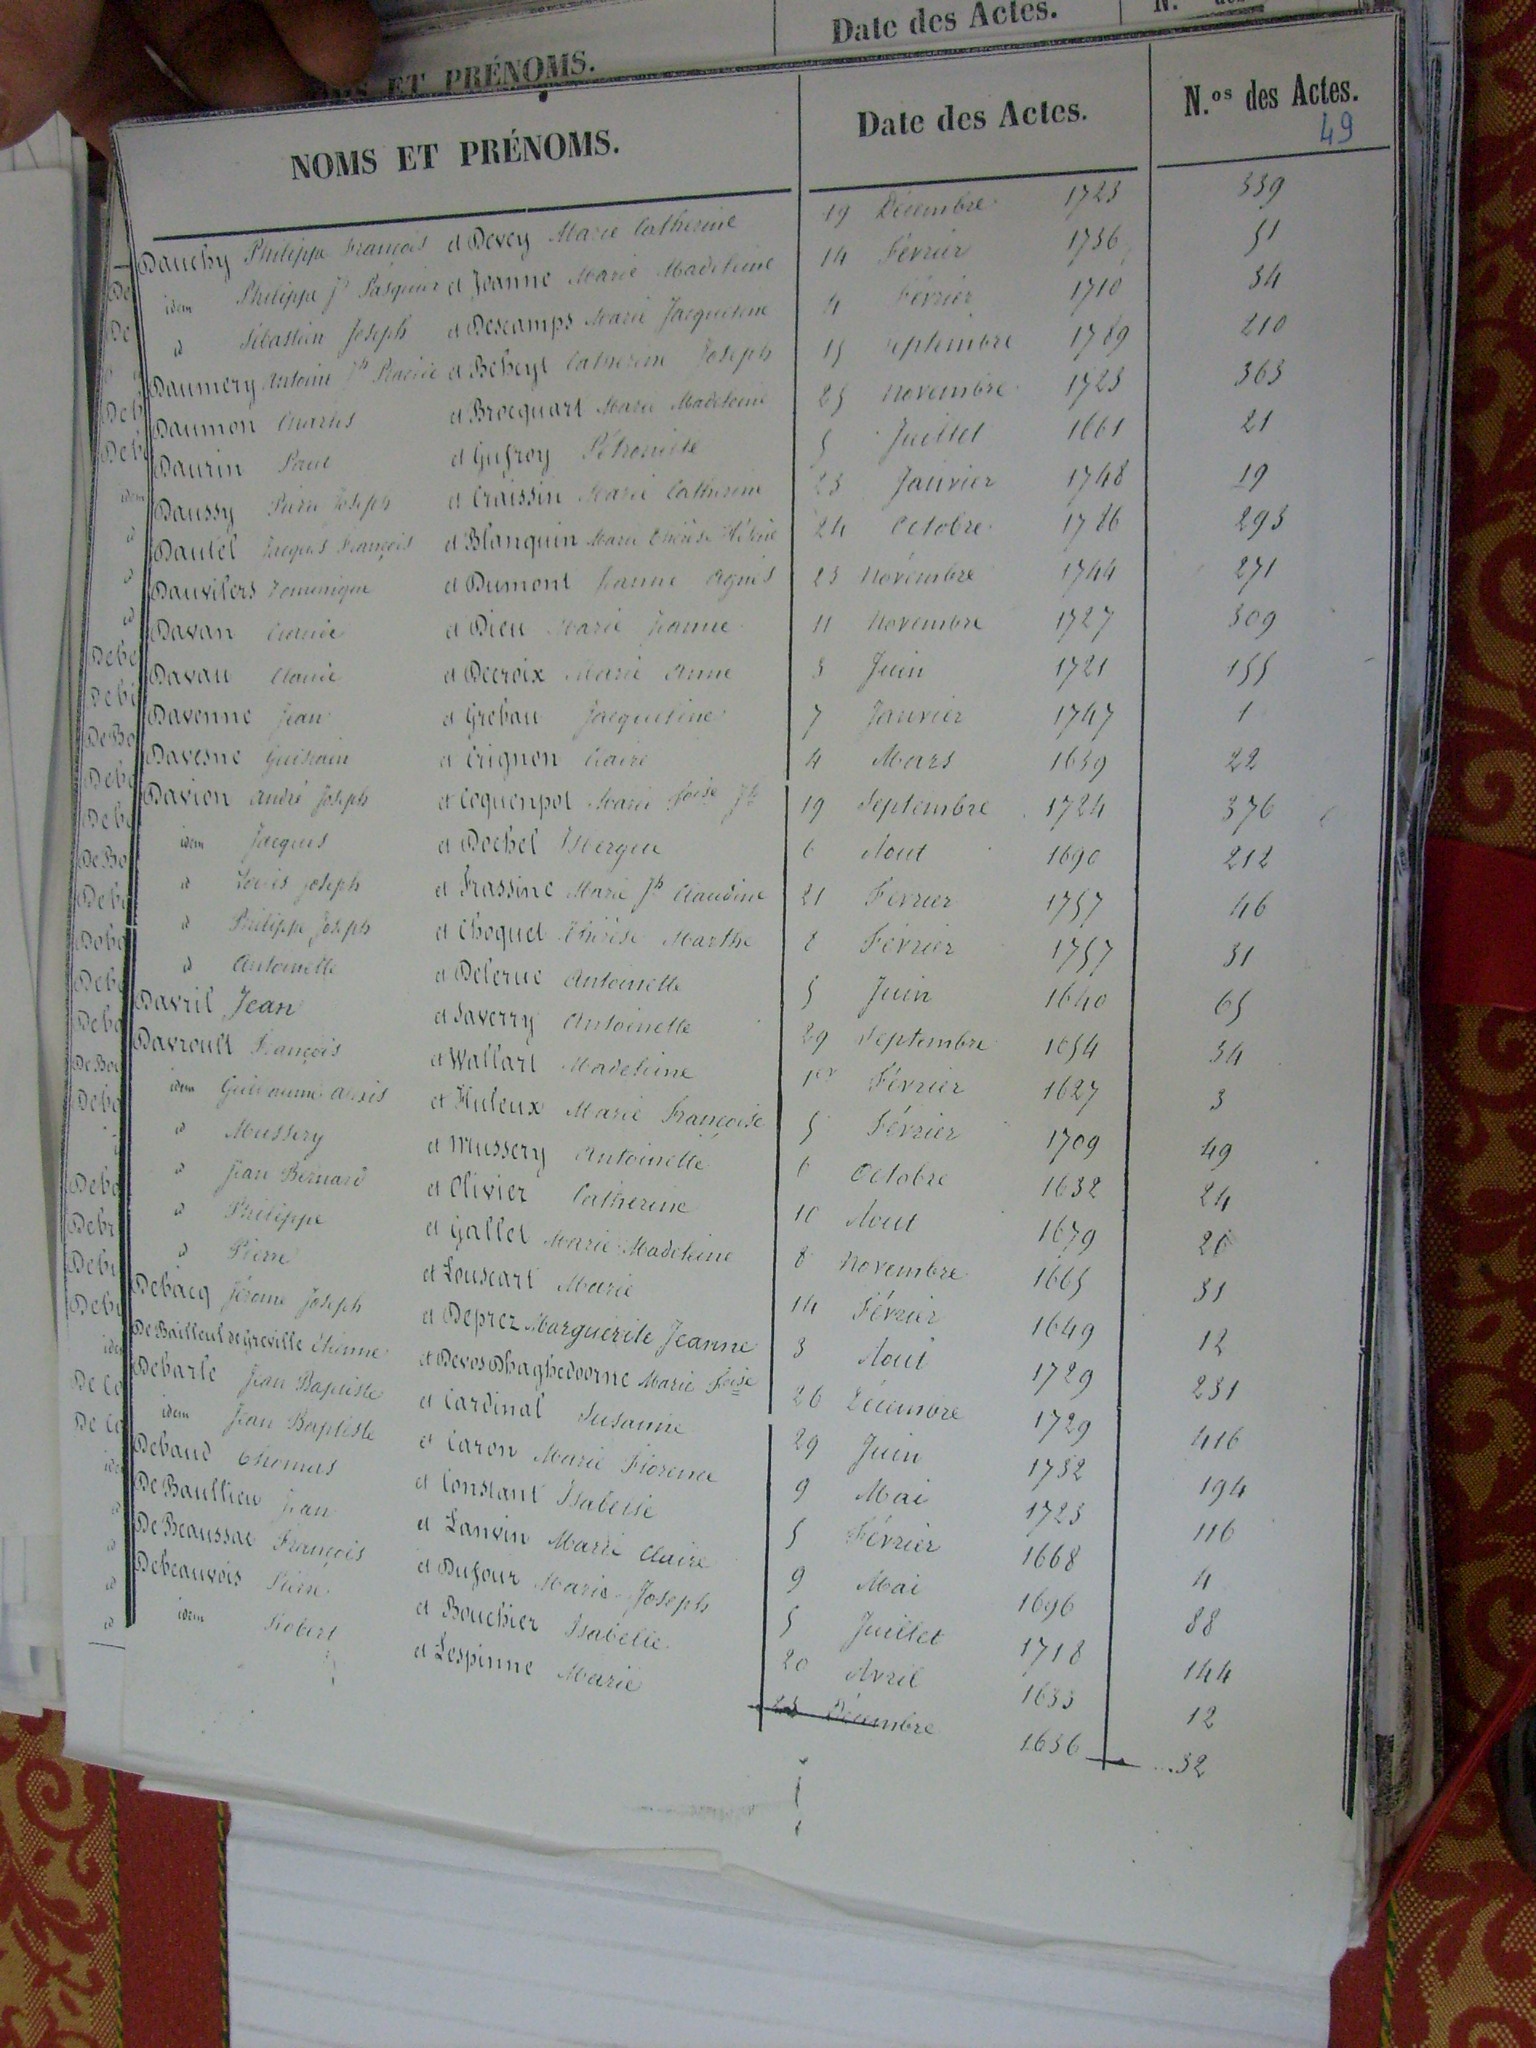 Date des Actes.
ET PRÉNOMS.
NOMS ET PRÉNOMS. Date des Actes. N.os des Actes.
49
Dauchy Philippe François et Devey Marie Catherine 19 Décembre 1723 339
idem Philippe Jh Pasquier et Jeanne Marie Madeleine 14 Février 1736 51
id Sébastien Joseph et Descamps Marie Jacqueline 4 Février 1710 34
Daumery Antoine Jh Placide et Beheyt Catherine Joseph 15 septembre 1789 210
Daumon Charles et Brocquart Marie Madeleine 25 novembre 1723 363
Daurin Paul et Gufroy Pétronille 5 Juillet 1661 21
Daussy Pierre Joseph et Craissin Marie Catherine 23 Janvier 1748 19
Dautel Jacques François et Blanquin Marie Thérèse 24 Octobre 1786 293
Dauvilers Dominique et Dumont Jeanne Agnès 23 Novembre 1744 271
Davan Claude et Dieu Marie Jeanne 11 Novembre 1727 309
Davau Claude et Decroix Marie Anne 3 Juin 1721 155
Davenne Jean et Grebau Jacqueline 7 Janvier 1747 1
Davesne Guislain et Crignon Claire 4 Mars 1639 22
Davion André Joseph et Coquenpot Marie foise Jh 19 Septembre 1724 376
idem Jacques et Dochel Isbergue 6 Aout 1690 212
id Louis Joseph et Frassine Marie Jh Claudine 21 Février 1757 46
id Philippe Joseph et Choquel Thérèse Marthe 8 Février 1757 31
id Antoinette et Delerue Antoinette 5 Juin 1640 65
Davril Jean et Saverry Antoinette 29 Septembre 1654 34
Davroult François et Wallart Madeleine 1er Février 1627 3
idem Guillaume Alexis et Huleux Marie Françoise 5 Février 1709 49
id Mussery et Mussery Antoinette 6 Octobre 1632 24
id Jean Bernard et Olivier Catherine 10 Aout 1679 26
id Philippe et Gallet Marie Madeleine 8 Novembre 1665 31
id Pierre et Louscart Marie 14 Février 1649 12
Debacq Jérome Joseph et Deprez Marguerite Jeanne 3 Aout 1729 231
De Bailleul de Greville Étienne et Devos Dhaghedoorne Marie foise 26 Décembre 1729 416
Debarle Jean Baptiste et Cardinal Susanne 29 Juin 1732 194
idem Jean Baptiste et Caron Marie Florence 9 Mai 1723 116
Debaud Thomas et Constant Isabelle 5 Février 1668 4
De Baullieu Jean et Lanvin Marie Claire 9 Mai 1696 88
De Beaussac François et Dufour Marie Joseph 5 Juillet 1718 144
Debeauvois Pierre et Bouchier Isabelle 20 Avril 1633 12
idem Robert et Lespinne Marie 23 Décembre 1636 32